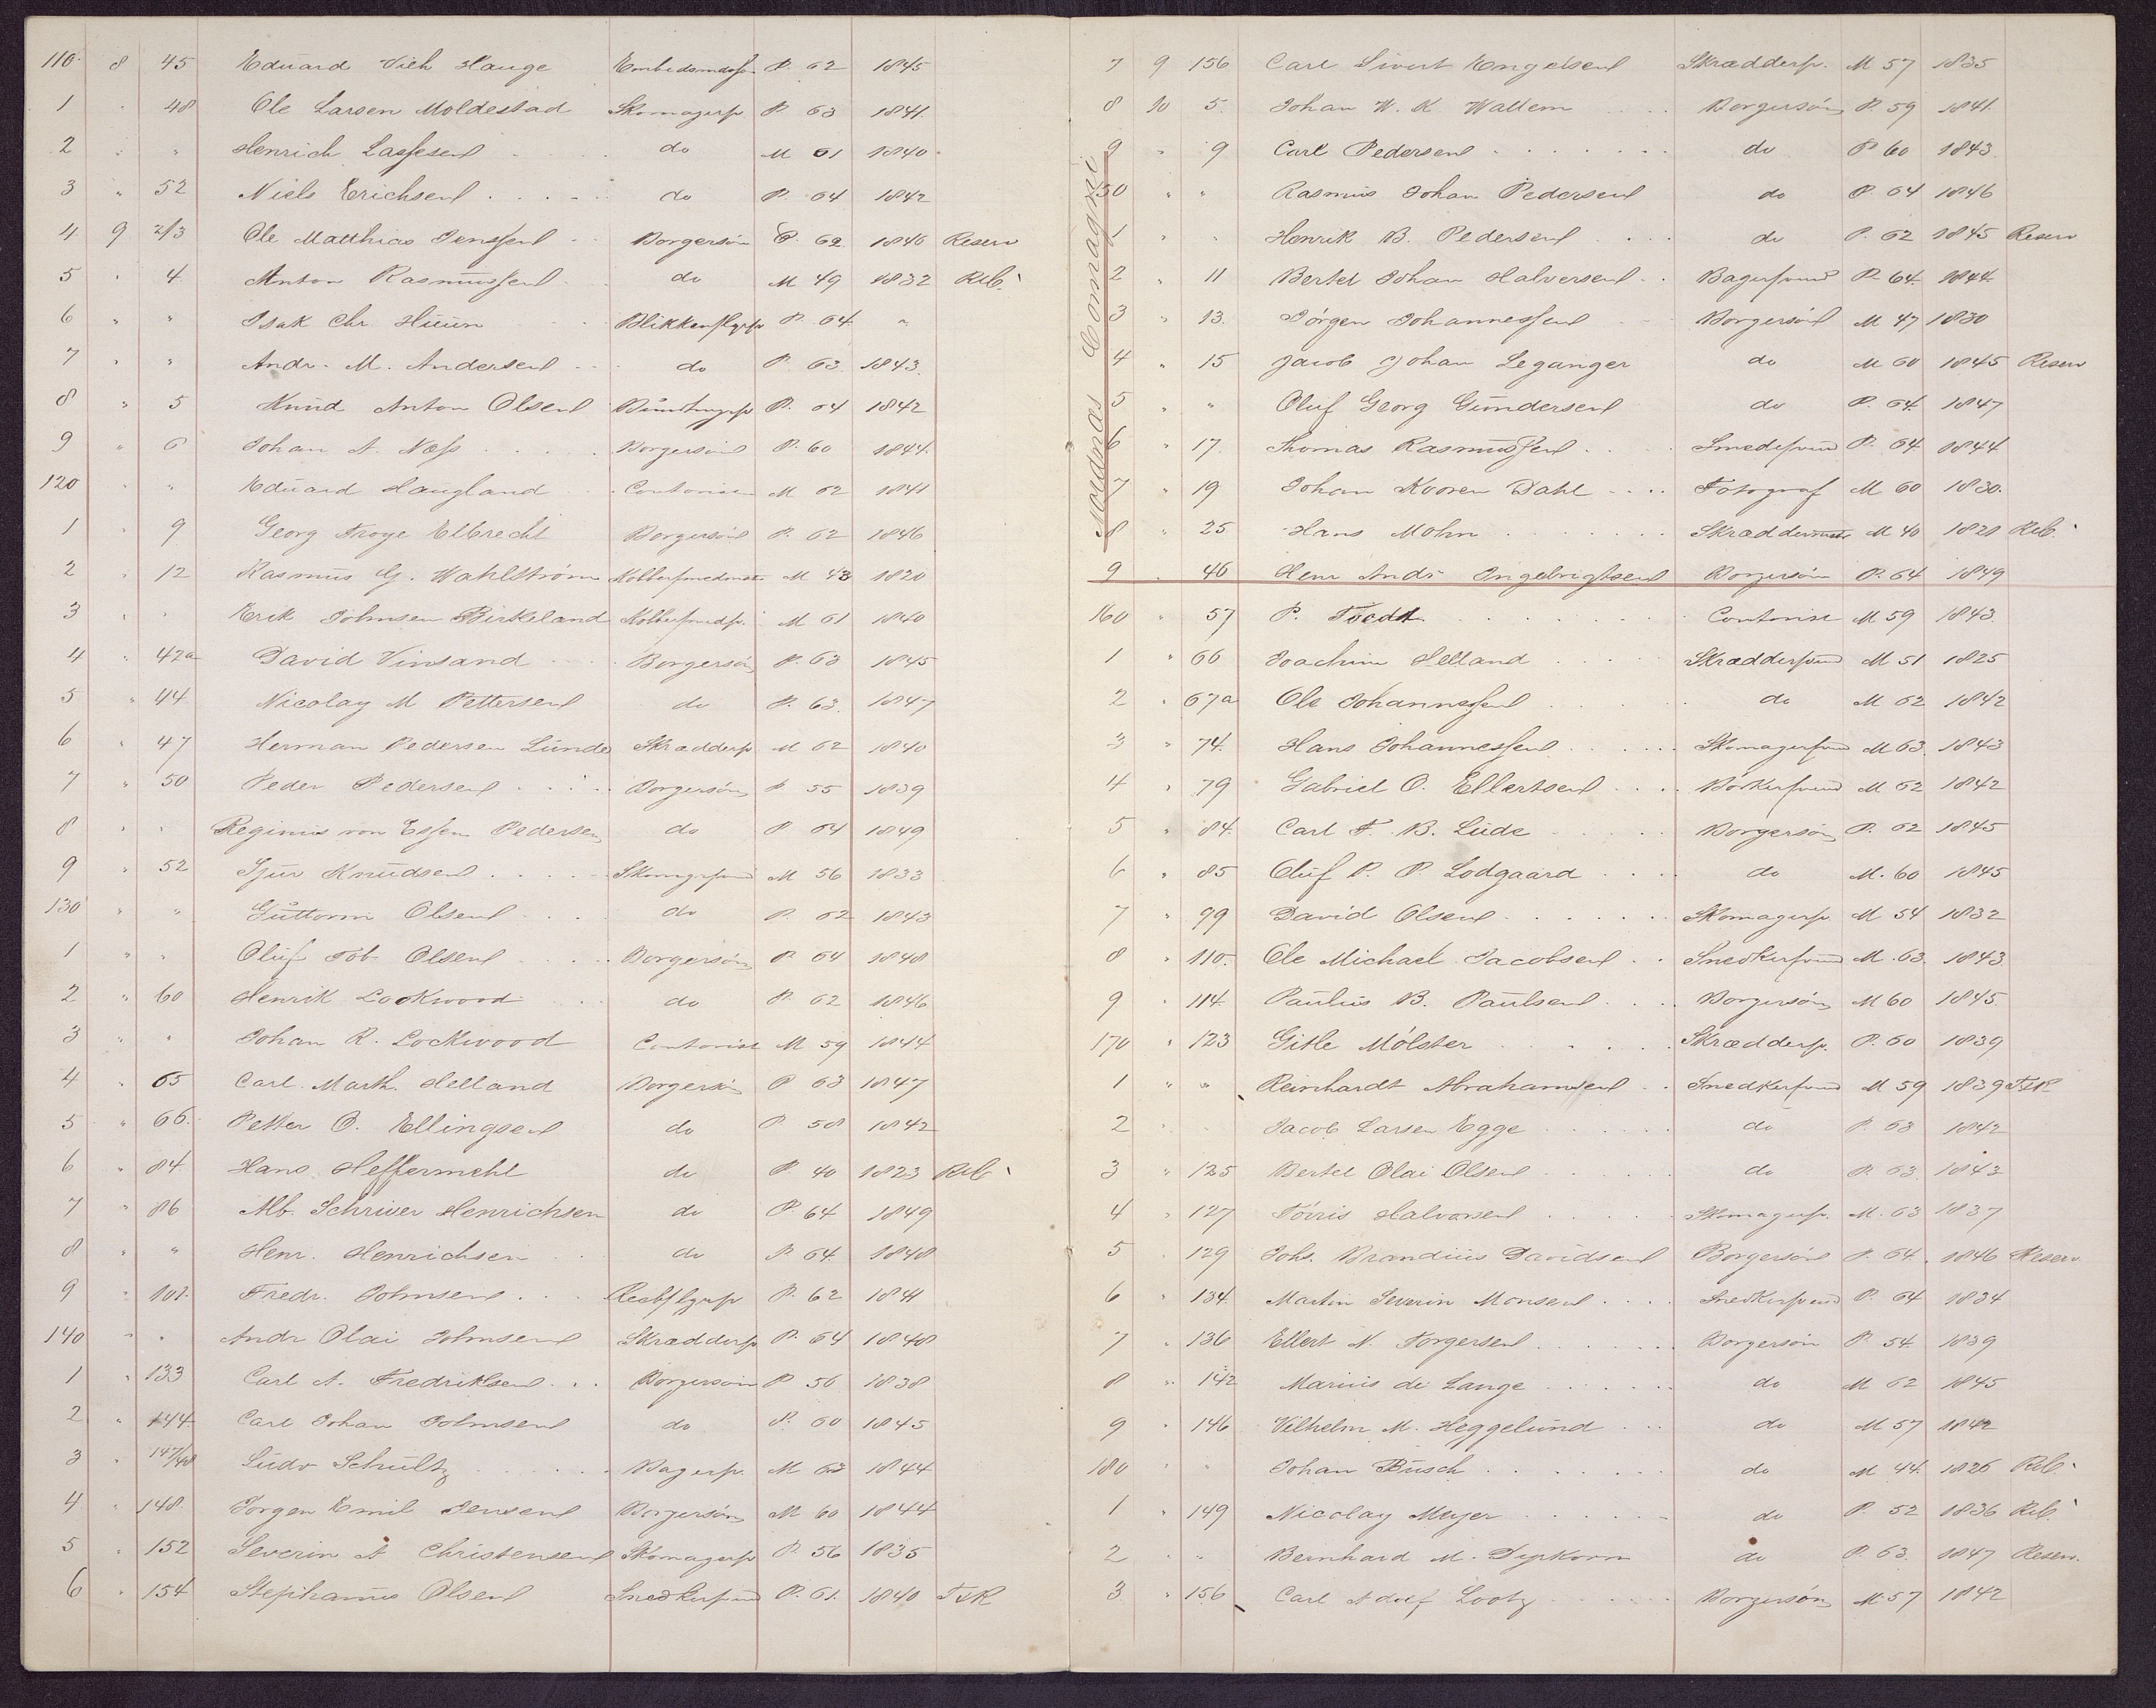 110. 8 45 Eduard Vieh Hauge P. 62 1845
1 " 48 Ole Larsen Moldestad Skomagersv P. 63 1841.
2 " " Henrich Lassesen do M 61 1840.
3 " 52 Niels Erichsen do P. 64 1842
4 9 2/3 Ole Matthias Jenssen Borgersön P. 62 1846 Reserv
5 " 4 Anton Rasmussen do M 49 1832 Reb.
6 " " Isak Chr. Huun P. 64 "
7 " " Andr. M. Andersen do P. 63 1843.
8 " 5 Knud Anton Olsen P. 64 1842
9 " 6 Johan A. Næss Borgersön P. 60 1844.
120 " " Eduard Haugland Contorist M 62 1841
1 " 9 Georg Troye Elbrecht Borgersön P. 62 1846
2 " 12 Rasmus G. Wahlström Kobbersmedmst M 43 1820
3 " " Erik Johnsen Birkeland Kobbersmedsv. M 61 1840
4 " 42a David Vinsand Borgersön P. 63 1845
5 " 44 Nicolay M Pettersen do P. 63. 1847
6 " 47 Herman Pedersen Lunde Skræddersv M 62 1840
7 " 50 Peder Pedersen Borgersön P 55 1839
8 " " Reginus von Essen Pedersen do P 64 1849
9 " 52 Sjur Knudsen M 56 1833
130 " " Guttorm Olsen do P. 62 1843
1 " " Oluf Tob. Olsen Borgersön P 64 1848
2 " 60 Henrik Lockwood do P. 62 1846
3 " " Johan R. Lockwood Contorist M 59 1844
4 " 65 Carl Marth. Helland Borgersön P 63 1847
5 " 66. Petter O. Ellingsen do P 58 1842
6 " 84 Hans Heffermehl do P. 40 1823 Reb.
7 " 86 Alb. Schriwer Henrichsen do P 64 1849
8 " " Henr. Henrichsen do P. 64. 1848
9 " 101. Fredr. Johnsen P. 62 1841
140 " " Andr Olai Johnsen Skræddersv P. 64 1848
1 " 133 Carl A. Fredriksen Borgersön P 56 1838
2 " 144 Carl Johan Johnsen do P. 60 1845
3 " 147/48 Ludv Schultz Bagersv. M 63 1844
4 " 148. Jorgen Emil Jensen Borgersön M 60 1844
5 " 152 Severin A Christensen Skomagersv P. 56 1835
6 " 154 Stephanus Olsen Snedkersvend P. 61. 1840 TsR
Nordnæs Comagnie
7 9 156 Carl Sivert Engelsen Skræddersv. M 57 1835
8 10 5. Johan W. K Wallem Borgersön P. 59 1841.
9 " 9 Carl Pedersen do P 60 1843.
150 " " Rasmus Johan Pedersen do P. 64 1846
1 " " Henrik B. Pedersen do P. 62 1845 Reserv
2 " 11 Bertel Johan Halversen Bagersvend P. 64. 1844.
3 " 13. Jörgen Johannessen Borgersön M 47 1830
4 " 15 Jacob Johan Leganger do M 60 1845 Reserv
5 " " Oluf Georg Gundersen do P. 64. 1847
6 " 17. Thomas Rasmussen Smedesvend P. 64. 1844
7 " 19 Johan Kooren Dahl Fotograf M 60 1830.
8 " 25 Hans Mohn Skræddermst M 40 1821 Reb.
9 " 46 Henr Andr Ingebrigtsen Borgersön P. 64 1849
160 " 57 P. Contorist M 59 1843.
1 " 66 Joachim Helland Skræddersvend M 51 1825
2 " 67a Ole Johannessen do M 62 1842
3 " 74. Hans Johannessen Skomagersvend M 63. 1843
4 " 79 Gabriel O. Ellertsen Bökersvend M 62 1842
5 " 84. Carl F. B. Lude Borgersön P. 62 1845
6 " 85 Oluf P. P. Lodgaard do M. 60 1845
7 " 99 David Olsen Skomagersv. M 54 1832
8 " 110. Ole Michael Jacobsen Snedkersvend M. 63. 1843
9 " 114. Paulus B. Paulsen Borgersön M 60 1845.
170 " 123 Gitle Mölster Skræddersv. P. 60 1839
1 " " Reinhardt Abrahamsen Snedkersvend M 59 1839 TsR
2 " " Jacob Larsen Egge do P. 63 1842
3 " 125 Bertel Olai Olsen do P. 63 1843
4 " 127 Törris Halvorsen Skomagersv. M. 63 1837
5 " 129 Johs. Brandius Davidsen Borgersön P. 64. 1846 Reserv.
6 " 134. Martin Severin Monsen Snedkersvend P. 64 1834
7 " 136 Ellert N. Torgersen Borgersön P. 54. 1839
8 " 142 Marius de Lange do M 62 1845
9 " 146 Vilhelm M. Heggelund do M 57 1842
180 " " Johan Busch do M 44. 1826 Reb.
1 " 149 Nicolay Meyer do P. 52 1836 Reb.
2 " " Bernhard M. Dyrkorn do P. 63. 1847 Reserv.
3 " 156 Carl Adolf Lootz Borgersön M 57 1842